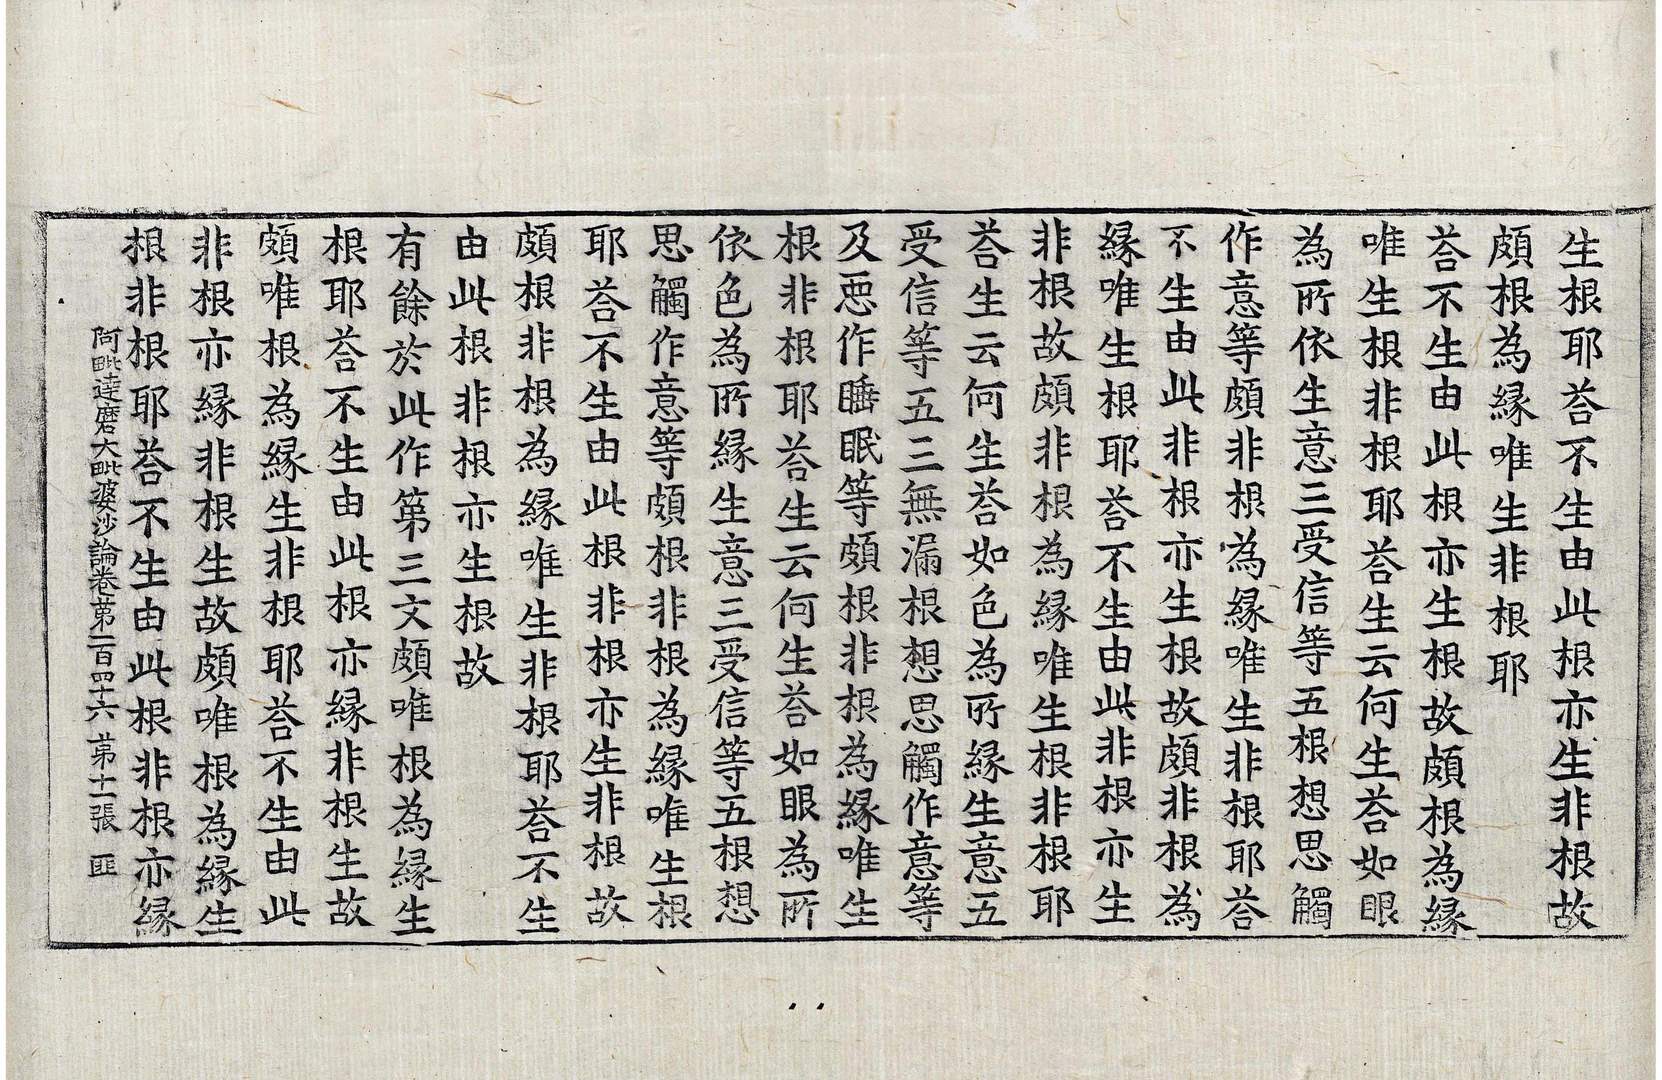 生根耶荅不生由此根亦生非根故
頗根為縁唯生非根耶
荅不生由此根亦生根故頗根為縁
唯生根非根耶荅生云何生荅如眼
為所依生意三受信等五根想思觸
作意等頗非根為縁唯生非根耶荅
不生由此非根亦生根故頗非根為
縁唯生根耶荅不生由此非根亦生
非根故頗非根為縁唯生根非根耶
荅生云何生荅如色為所縁生意五
受信等五三無漏根想思觸作意等
及惡作睡眠等頗根非根為縁唯生
根非根耶荅生云何生荅如眼為所
依色為所縁生意三受信等五根想
思觸作意等頗根非根為縁唯生根
耶荅不生由此根非根亦生非根故
頗根非根為縁唯生非根耶荅不生
由此根非根亦生根故
有餘於此作第三文頗唯根為縁生
根耶荅不生由此根亦縁非根生故
頗唯根為縁生非根耶荅不生由此
非根亦縁非根生故頗唯根為縁生
根非根耶荅不生由此根非根亦縁
阿毗達磨大毗婆沙論卷第一百四十六 第十一張 匪